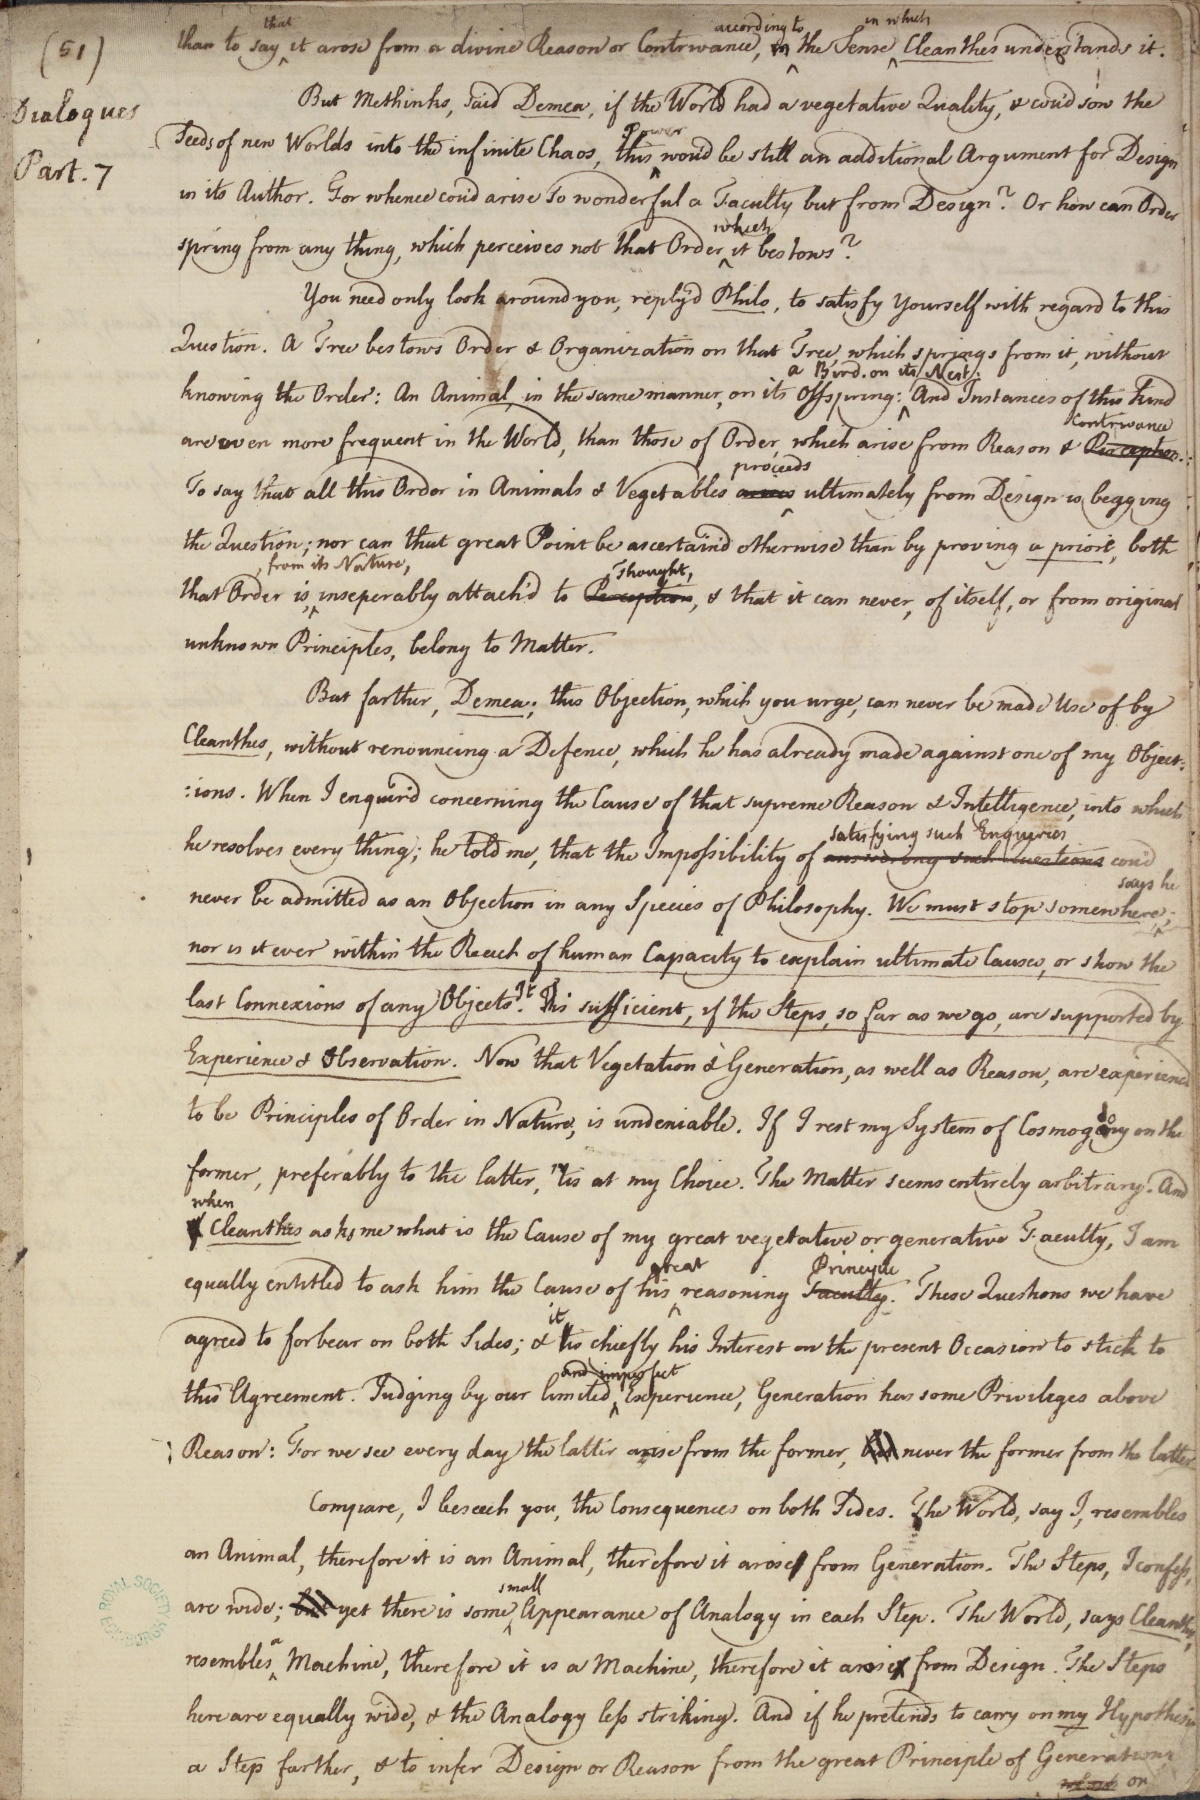 (51)
Dialogues
Part. 7
than to say that it arose from a divine Reason or Contrivance, according to the Sense in which Cleanthes understands it.
But Methinks, said Demea, if the World had a vegetative Quality, & coud sow the
Seeds of new Worlds into the infinite Chaos, this Power woud be still an additional Argument for Design
in its Author. For whence coud arise so wonderful a Faculty but from Design? Or how can Order
spring from any thing, which perceives not that Order which it bestows?
You need only look around you, reply'd Philo, to satisfy Yourself with regard to this
Question. A Tree bestows Order & Organization on that Tree, which springs from it, without
knowing the Order: An Animal, in the same manner, on its Offspring: a Bird, on its Nest: And Instances of this kind
are even more frequent in the World, than those of Order, which arise from Reason & Perception. Contrivance
To say that all this Order in Animals & Vegetables arises proceeds ultimately from Design is begging
the Question; nor can that great Point be ascertain'd otherwise than by proving a priori, both
that Order is, from its Nature, inseperably attach'd to Perception Thought, & that it can never, of itself, or from original
unknown Principles, belong to Matter.
But farther, Demea; this Objection, which you urge, can never be made Use of by
Cleanthes, without renouncing a Defence, which he has already made against one of my Object:
:ions. When I enquir'd concerning the Cause of that supreme Reason & Intelligence, into which
he resolves every thing; he told me, that the Impossibility of answering such Questions satisfying such Enquiries coud
never be admitted as an Objection in any Species of Philosophy. We must stop somewhere, says he;
nor is it ever within the Reach of human Capacity to explain ultimate Causes, or show the
last Connexions of any Objects. It is sufficient, if the Steps, so far as we go, are supported by
Experience & Observation. Now that Vegetation & Generation, as well as Reason, are experienced
to be Principles of Order in Nature, is undeniable. If I rest my System of Cosmogony on the
former, preferably to the latter, 'tis at my Choice. The Matter seems entirely arbitrary. And
when Cleanthes asks me what is the Cause of my great vegetative or generative Faculty, I am
equally entitled to ask him the Cause of his great reasoning Faculty. Principle These Questions we have
agreed to forbear on both Sides; & it is chiefly his Interest on the present Occasion to stick to
this Agreement. Judging by our limited and imperfect Experience, Generation has some Privileges above
Reason: For we see every day the latter arise from the former, but never the former from the latter.
Compare, I beseech you, the Consequences on both Sides. The World, say I, resembles
an Animal, therefore it is an Animal, therefore it arose from Generation. The Steps, I confess,
are wide; but yet there is some small Appearance of Analogy in each Step. The World, says Cleanthes,
resembles a Machine, therefore it is a Machine, therefore it arose from Design. The Steps
here are equally wide, & the Analogy less striking. And if he pretends to carry on my Hypothesis
a Step farther, & to infer Design or Reason from the great Principle of Generation,
or
ROYAL SOCIETY
EDINBURGH